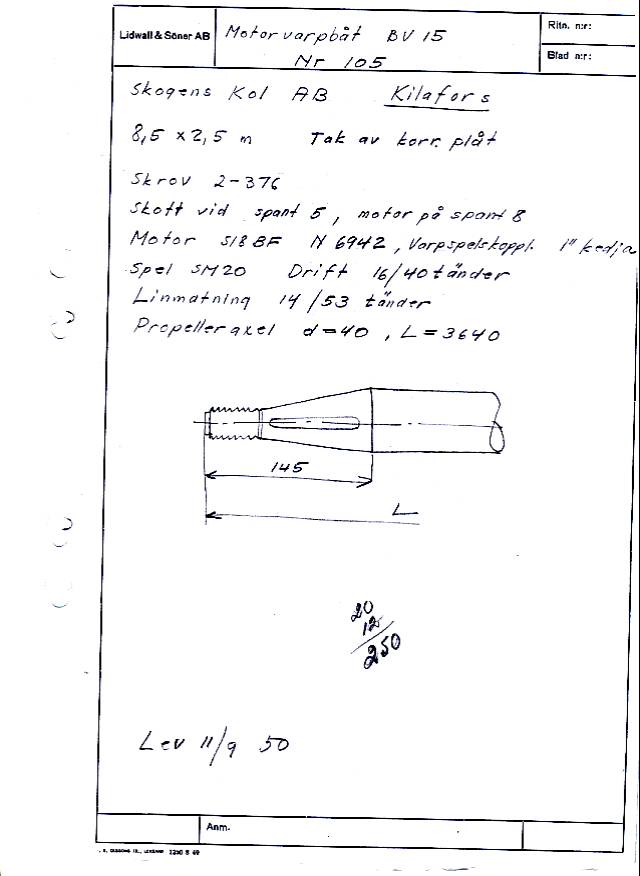 Lidwall & Söner AB
Motorvarpbåt BV 15
Nr 105
Ritn. n:r:
Blad n:r:
Skogens Kol AB Kilafors
8,5 x 2,5 m Tak av korr. plåt
Skrov 2-376
Skott vid spant 5, motor på spant 8
Motor S18BF N 6942, Varpspelskoppl. 1" kedja
Spel SM20 Drift 16/40 tänder
Linmatning 14/53 tänder
Propelleraxel d=40, L=3640
145
L
20
12
250
Lev 11/9 50
Anm.